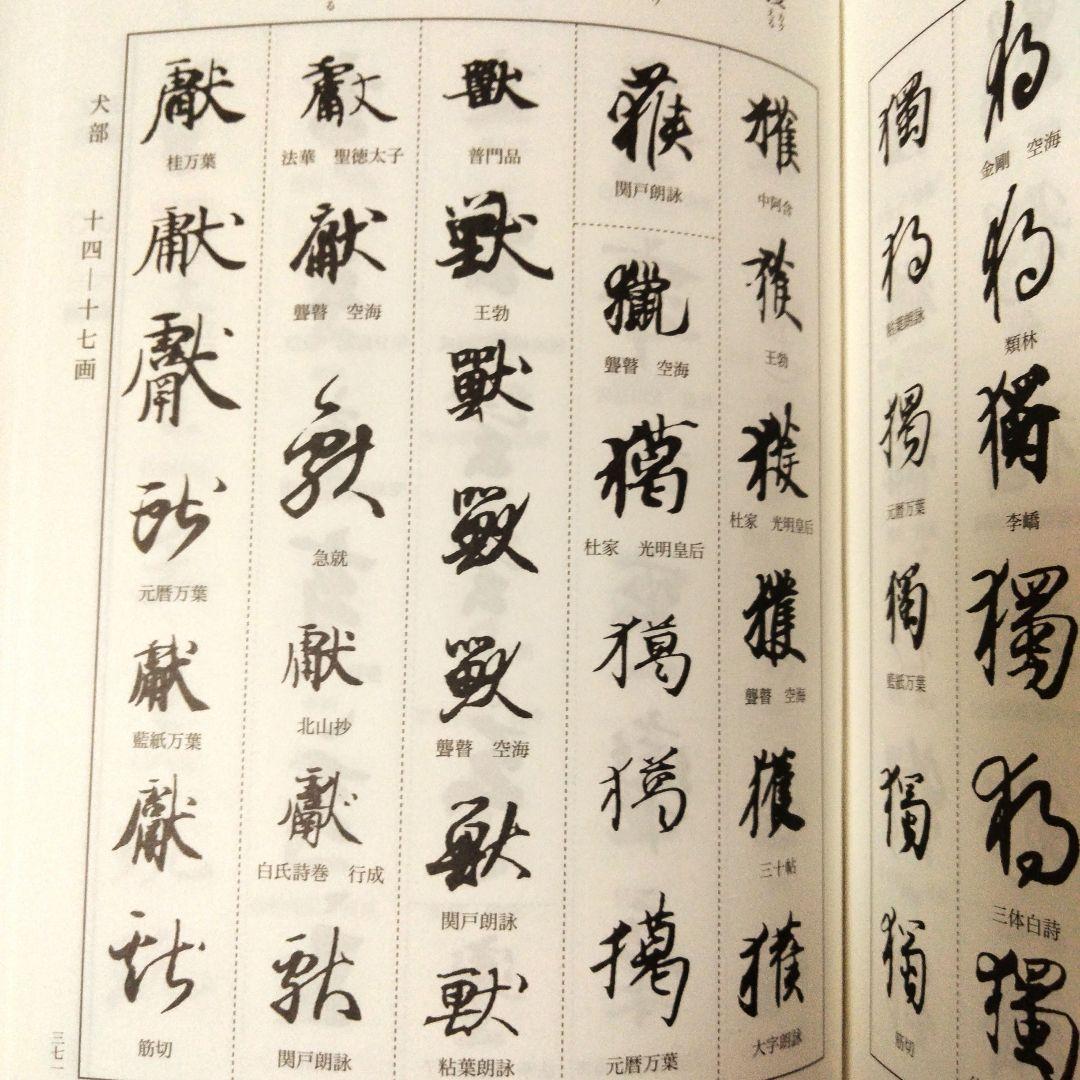 獨
金剛　空海
獨
類林
獨
李嶠
獨
獨
三体白詩
獨
獨
獨
粘葉朗詠
獨
元暦万葉
獨
藍紙万葉
獨
獨
筋切
獲
中阿含
獲
王勃
獲
杜家　光明皇后
獲
聾瞽　空海
獲
三十帖
獲
大字朗詠
獲
関戸朗詠
獵
聾瞽　空海
獦
杜家　光明皇后
獦
獦
獦
元暦万葉
獸
普門品
獸
王勃
獸
獸
獸
聾瞽　空海
獸
関戸朗詠
獸
粘葉朗詠
獻
法華　聖徳太子
獻
聾瞽　空海
獻
急就
獻
北山抄
獻
白氏詩巻　行成
獻
関戸朗詠
獻
桂万葉
獻
獻
獻
元暦万葉
獻
藍紙万葉
獻
獻
筋切
犬部　十四—十七画
三七一